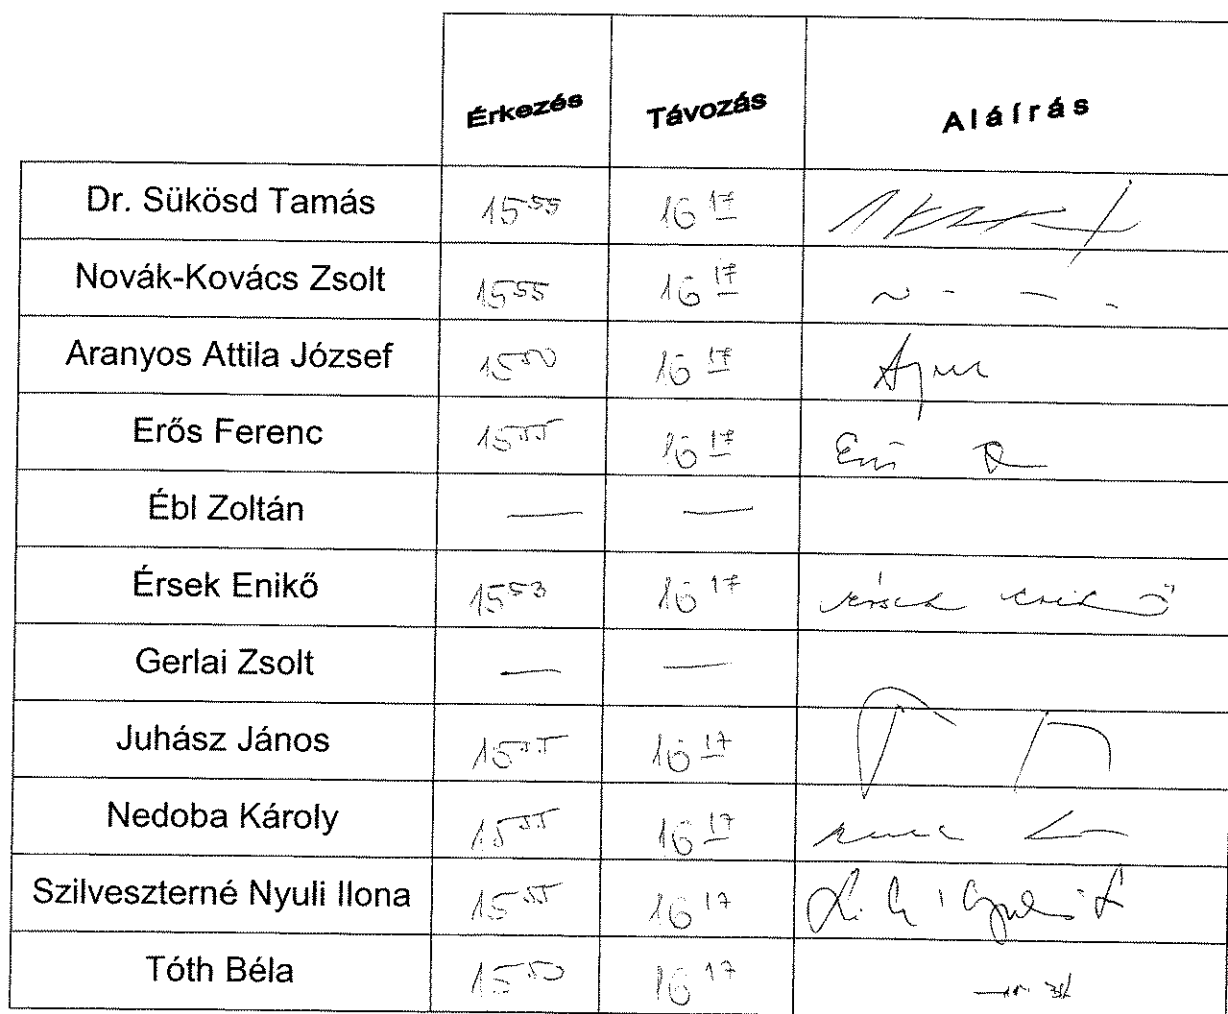 Érkezés Távozás Aláírás
Dr. Sükösd Tamás 15⁵⁵ 16¹⁷
Novák-Kovács Zsolt 15⁵⁵ 16¹⁷
Aranyos Attila József 15⁵⁰ 16¹⁷
Erős Ferenc 15⁵⁵ 16¹⁷
Ébl Zoltán — —
Érsek Enikő 15⁵³ 16¹⁷ Érsek Enikő
Gerlai Zsolt — —
Juhász János 15⁵⁵ 16¹⁷
Nedoba Károly 15⁵⁵ 16¹⁷
Szilveszterné Nyuli Ilona 15⁵⁵ 16¹⁷
Tóth Béla 15⁵⁰ 16¹⁷